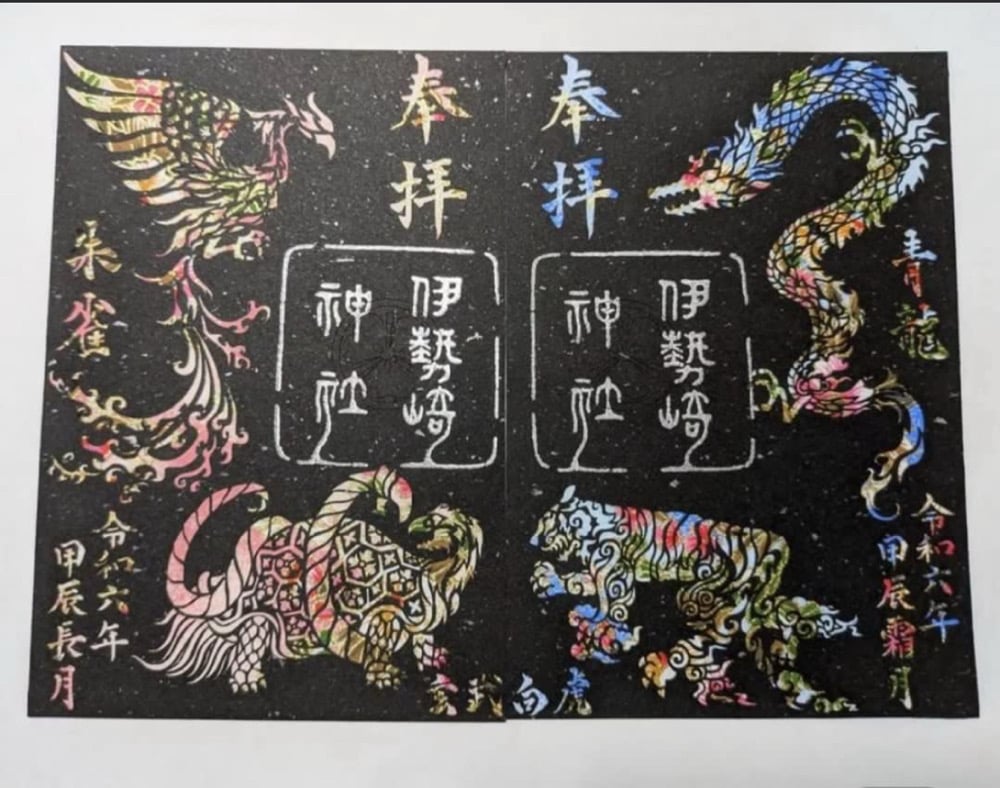 奉拝
青龍
伊勢崎
神社
令和六年
甲辰霜月
白虎
奉拝
伊勢崎
神社
朱雀
玄武
令和六年
甲辰長月